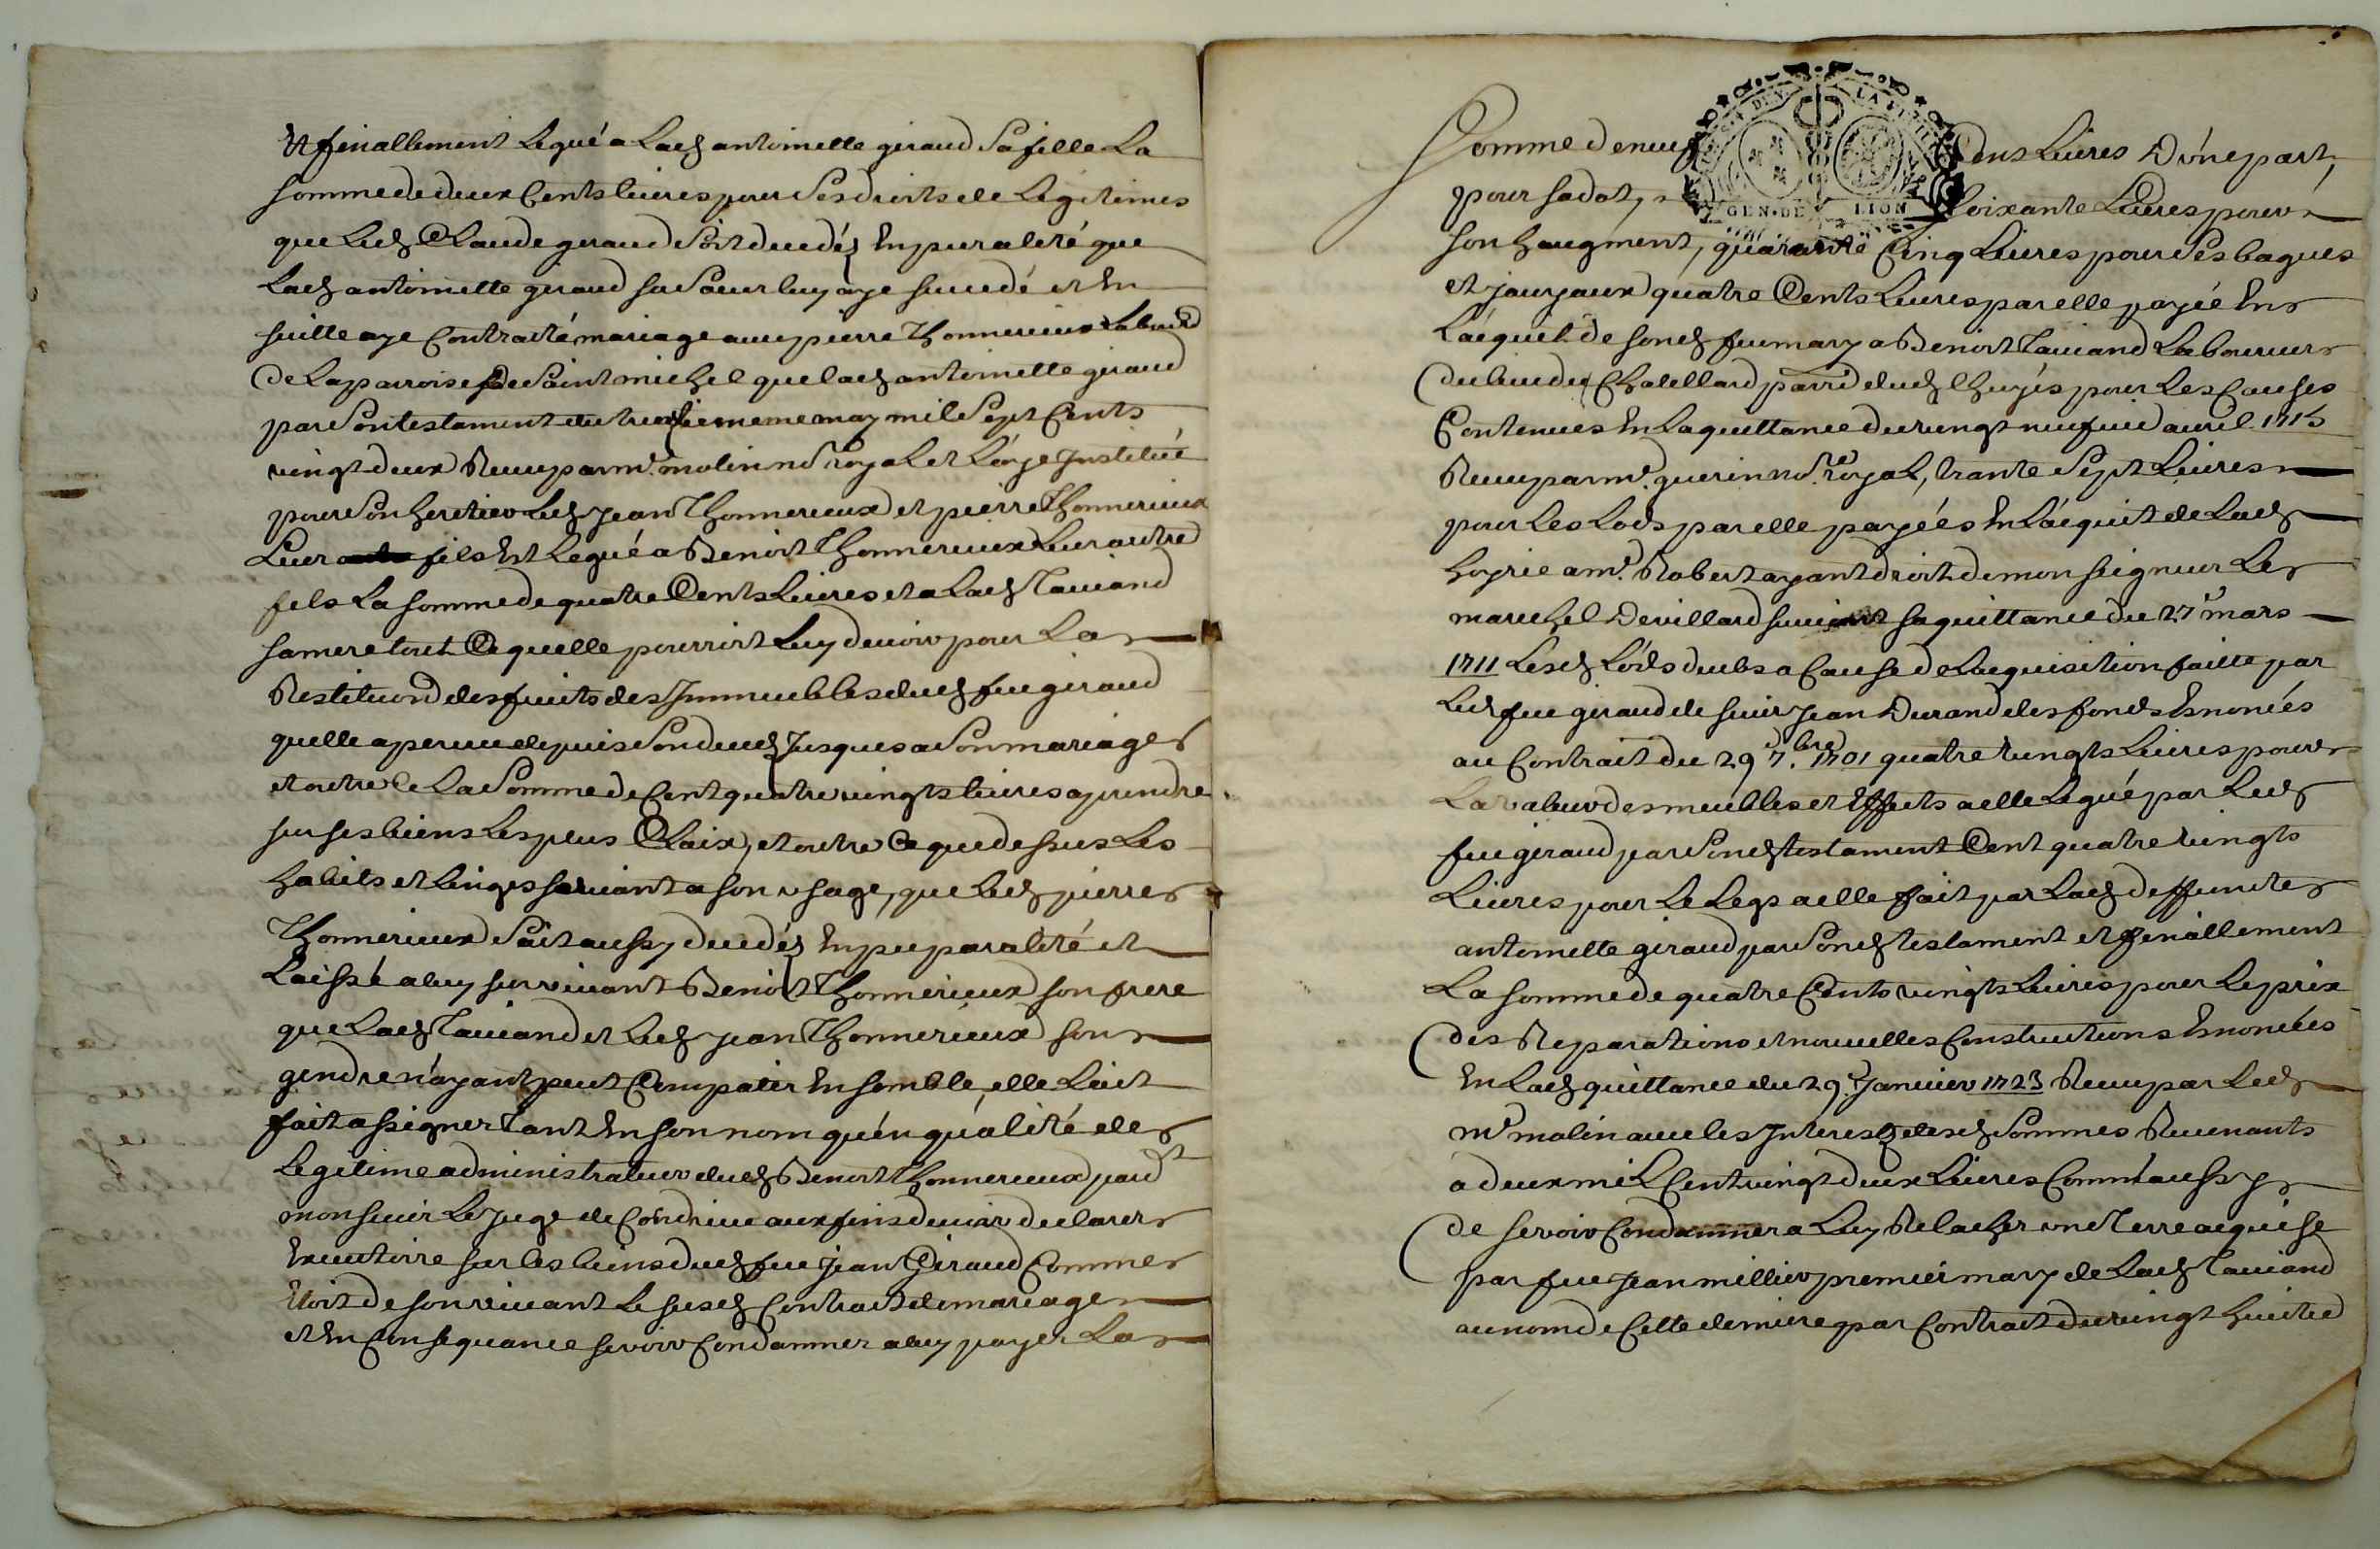 Et finallement Legué a Lad antoinette giraud Sa fille La
Somme de deux Cents livres pour Ses droits de Legitimes
que Led Claude giraud Soit decedés En puralité que
Lad antoinette giraud Sa Soeur luy aye succedé et En
suitte aye Contracté mariage avec pierre Thonnerieux
De La parroisse De Saint michel que lad antoinette giraud
par Son testament du may mil Sept Cents
vingt deux Receu par me. molin no royal et Léaye Institué
pour Son heretier Led jean Thonnerieux et pierre Thonnerieux
Leur fils Et Legué a Benoist Thonnerieux Leur autre
fils La somme de quatre Cents Livres et a Lad Taviand
sa mere tout Ce quelle pourroit Luy devoir pour La
Restituon des fruits des Immeubles dud feu giraud
quelle a perceu depuis Son deced Jusques a Son mariage
et outre Ce La Somme de Cent quatre vingts livres a prendre
sur ses biens Les plus Claix, et outre Ce que dessus Les
habits et Linges servant a son usage, que Led pierre
Thonnerieux Soit aussy decedés En pupuralité et
Laissé a luy survivant Benoist Thonnerieux son frere
que Lad Taviand et Led jean Thonnerieux son
gendre n'ayant peut Compatir Ensemble, elle Lait
fait assigner Tant En son nom qu'en quálité de
Legitime administrateur dud Benoist Thonnerieux pard
monsieur Le Juge de Condrieu aux fins de voir declarer
Executoire sur les biens dud feu jean Giraud Comme
Etoit de son vivant Le susd Contract de mariage
et En Consequance se voir Condamner a luy payer La
Somme de neuf Cents Livres D'une part,
pour sa dot, Soixante Livres pour
son haugment, quarante Cinq Livres pour Ses bagues
et jouyaux quatre Cents Livres par elle payée En
L'acquit de sond feu mary a Benoist Taviand Laboureur
du lieu du Chatellard parr dud pour Les Causes
Contenues En La quittance du vingt neufvie avril
Receu par me. guerin no.re royal, trante Sept Livres
pour Les Lods par elle payéés En L'acquit de Lad
hoyrie a me. Robert ayant droit de mon seigneur Le
marechel De villard suivant sa quittance du 27e mars
1711 Lesd Lods deubs a Cause de L'aquisition faitte par
Led feu giraud de sieur Jean Durand des fonds Enoncés
au Contrait du 29e 7.bre 1701 quatre vingts Livres pour
La valeur des meubles et Effects a elle Legué par Led
feu giraud par Sond testament Cent quatre vingts
Livres pour Le Legs a elle fait par Lad deffuncte
antoinette giraud par Sond testament et finallement
La somme de quatre Cents vingts Livres pour Le prix
des Reparations et nouvelles Constructions Enoncées
En Lad quittance du 29e Janvier 1723 Receu par Led
me molin avec les Interest desd Sommes Revenants
a deux mil Cent vingt deux Livres Comm'aussy
de se voir Condamner a Luy Relacher une Terre acquise
par feu Jean millier premier mary de Lad Taviand
au nom de Cette derniere par Contrait du vingt huitie